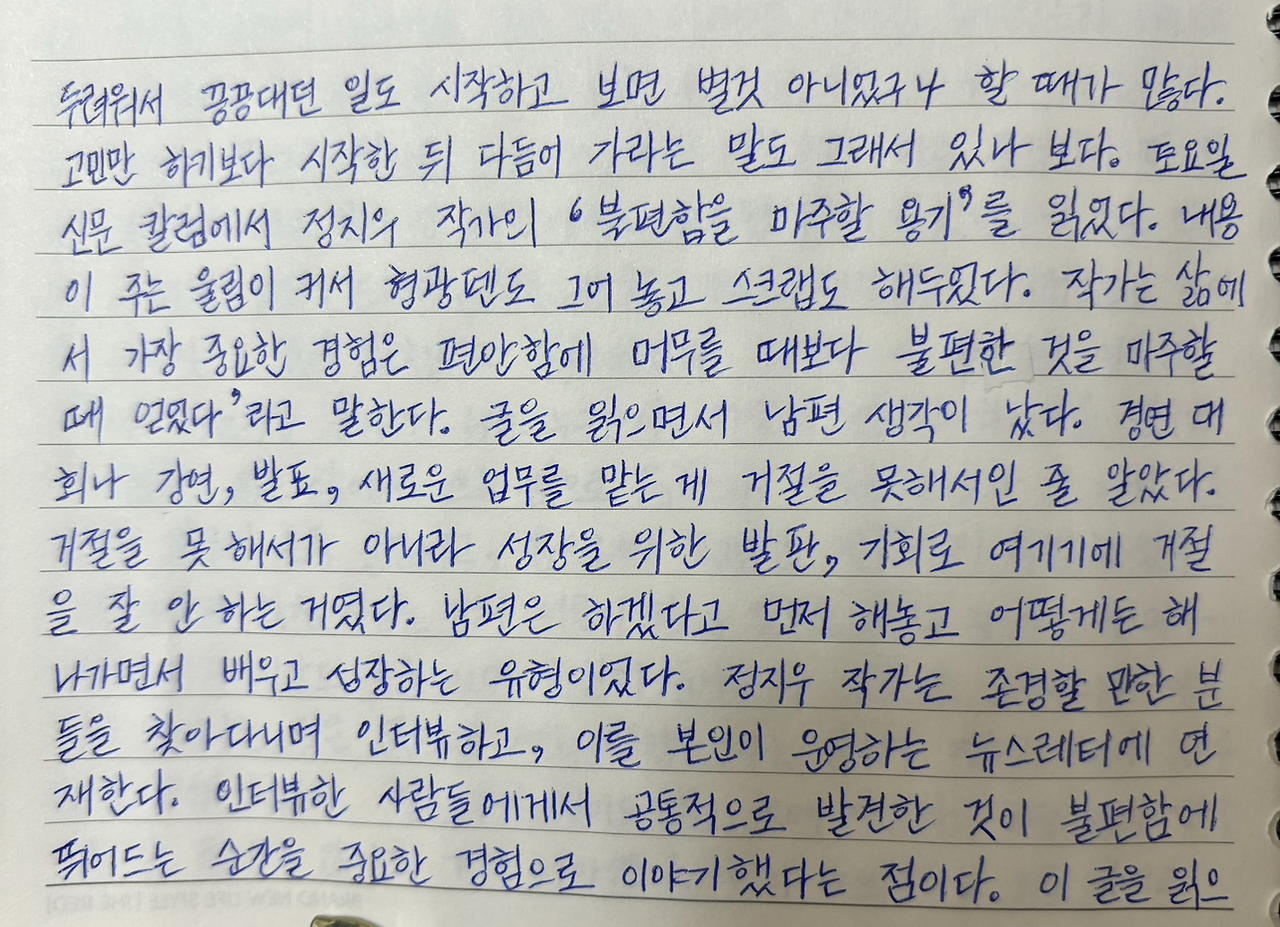 두려워서 끙끙대던 일도 시작하고 보면 별것 아니었구나 할 때가 많다.
고민만 하기보다 시작한 뒤 다듬어 가라는 말도 그래서 있나 보다. 토요일
신문 칼럼에서 정지우 작가의 ‘불편함을 마주할 용기’를 읽었다. 내용
이 주는 울림이 커서 형광펜도 그어 놓고 스크랩도 해두었다. 작가는 삶에
서 가장 중요한 경험은 편안함에 머무를 때보다 불편한 것을 마주할
때 얻었다’라고 말한다. 글을 읽으면서 남편 생각이 났다. 경연 대
회나 강연, 발표, 새로운 업무를 맡는 게 거절을 못해서인 줄 알았다.
거절을 못 해서가 아니라 성장을 위한 발판, 기회로 여기기에 거절
을 잘 안 하는 거였다. 남편은 하겠다고 먼저 해놓고 어떻게든 해
나가면서 배우고 성장하는 유형이었다. 정지우 작가는 존경할 만한 분
들을 찾아다니며 인터뷰하고, 이를 본인이 운영하는 뉴스레터에 연
재한다. 인터뷰한 사람들에게서 공통적으로 발견한 것이 불편함에
뛰어드는 순간을 중요한 경험으로 이야기했다는 점이다. 이 글을 읽으